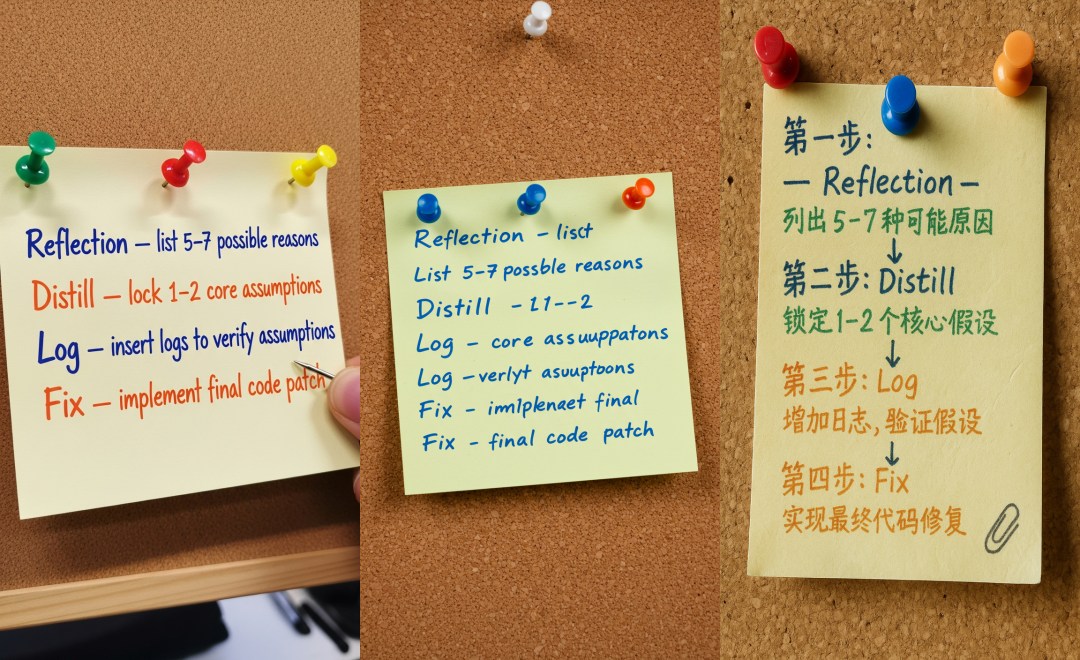 Reflection – list 5–7 possible reasons
Distill – lock 1–2 core assumptions
Log – insert logs to verify assumptions
Fix – implement final code patch
Reflection – lisct
List 5–7 possble reasons
Distill – 11--2
Log – core assuuppatons
Log – verlyt asuuptoons
Fix – iml1plenaet final
Fix – final code patch
第一步:
— Reflection –
列出5–7种可能原因
↓
第二步: Distill
锁定1–2个核心假设
↓
第三步: Log
增加日志, 验证假设
↓
第四步: Fix
实现最终代码修复